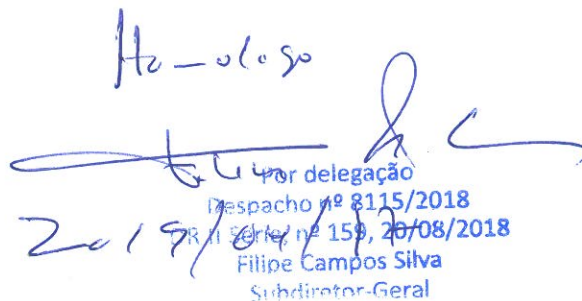 Homologo
Por delegação
Despacho nº 8115/2018
DR II Série, nº 159, 20/08/2018
2019/04/17
Filipe Campos Silva
Subdiretor-Geral